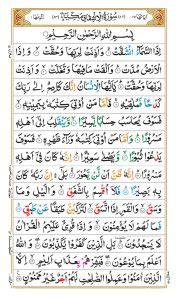 بِسْمِ اللهِ الرَّحْمٰنِ الرَّحِيْمِ
اِذَا السَّمَآءُ انْشَقَّتْ ۝ وَاَذِنَتْ لِرَبِّهَا وَحُقَّتْ ۝ وَاِذَا
الْاَرْضُ مُدَّتْ ۝ وَاَلْقَتْ مَا فِيْهَا وَتَخَلَّتْ ۝ وَاَذِنَتْ
لِرَبِّهَا وَحُقَّتْ ۝ يٰۤاَيُّهَا الْاِنْسَانُ اِنَّكَ كَادِحٌ اِلٰى رَبِّكَ
كَدْحًا فَمُلٰقِيْهِ ۝ فَاَمَّا مَنْ اُوْتِيَ كِتٰبَهٗ بِيَمِيْنِهٖ ۝ فَسَوْفَ
يُحَاسَبُ حِسَابًا يَّسِيْرًا ۝ وَّيَنْقَلِبُ اِلٰۤى اَهْلِهٖ
مَسْرُوْرًا ۝ وَاَمَّا مَنْ اُوْتِيَ كِتٰبَهٗ وَرَآءَ ظَهْرِهٖ ۝ فَسَوْفَ
يَدْعُوْا ثُبُوْرًا ۝ وَّيَصْلٰى سَعِيْرًا ۝ اِنَّهٗ كَانَ فِيْۤ اَهْلِهٖ
مَسْرُوْرًا ۝ اِنَّهٗ ظَنَّ اَنْ لَّنْ يَّحُوْرَ ۝ بَلٰۤى ۚ اِنَّ رَبَّهٗ كَانَ
بِهٖ بَصِيْرًا ۝ فَلَاۤ اُقْسِمُ بِالشَّفَقِ ۝ وَالَّيْلِ وَمَا
وَسَقَ ۝ وَالْقَمَرِ اِذَا اتَّسَقَ ۝ لَتَرْكَبُنَّ طَبَقًا عَنْ طَبَقٍ ۝
فَمَا لَهُمْ لَا يُؤْمِنُوْنَ ۝ وَاِذَا قُرِئَ عَلَيْهِمُ الْقُرْاٰنُ
لَا يَسْجُدُوْنَ ۝ بَلِ الَّذِيْنَ كَفَرُوْا يُكَذِّبُوْنَ ۝ وَاللهُ
اَعْلَمُ بِمَا يُوْعُوْنَ ۝ فَبَشِّرْهُمْ بِعَذَابٍ اَلِيْمٍ ۝ اِلَّا الَّذِيْنَ
اٰمَنُوْا وَعَمِلُوا الصّٰلِحٰتِ لَهُمْ اَجْرٌ غَيْرُ مَمْنُوْنٍ ۝